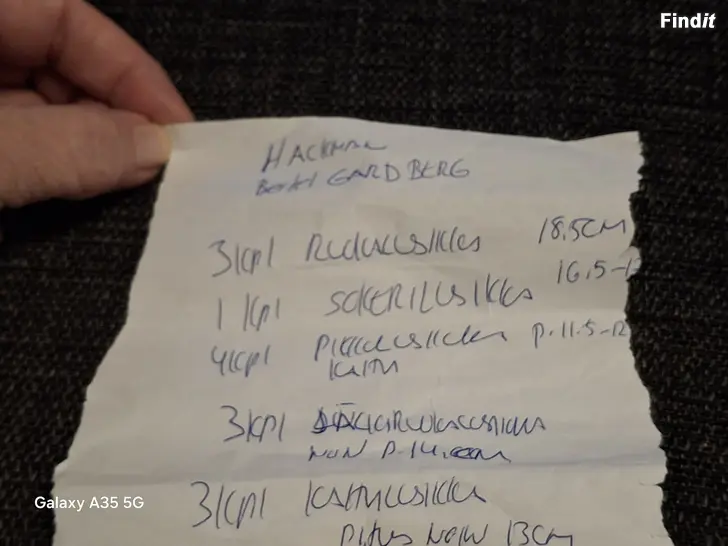 Findit
HACKMAN
BERTEL GARDBERG
3 kpl RUOKALUSIKKA 18,5CM
1 kpl SOKERILUSIKKA 16,5-1
4 kpl P-11.5-12
3 kpl
NOIN P-14,
3 kpl KAHVILUSIKKA
PITUUS NOIN 13CM
Galaxy A35 5G